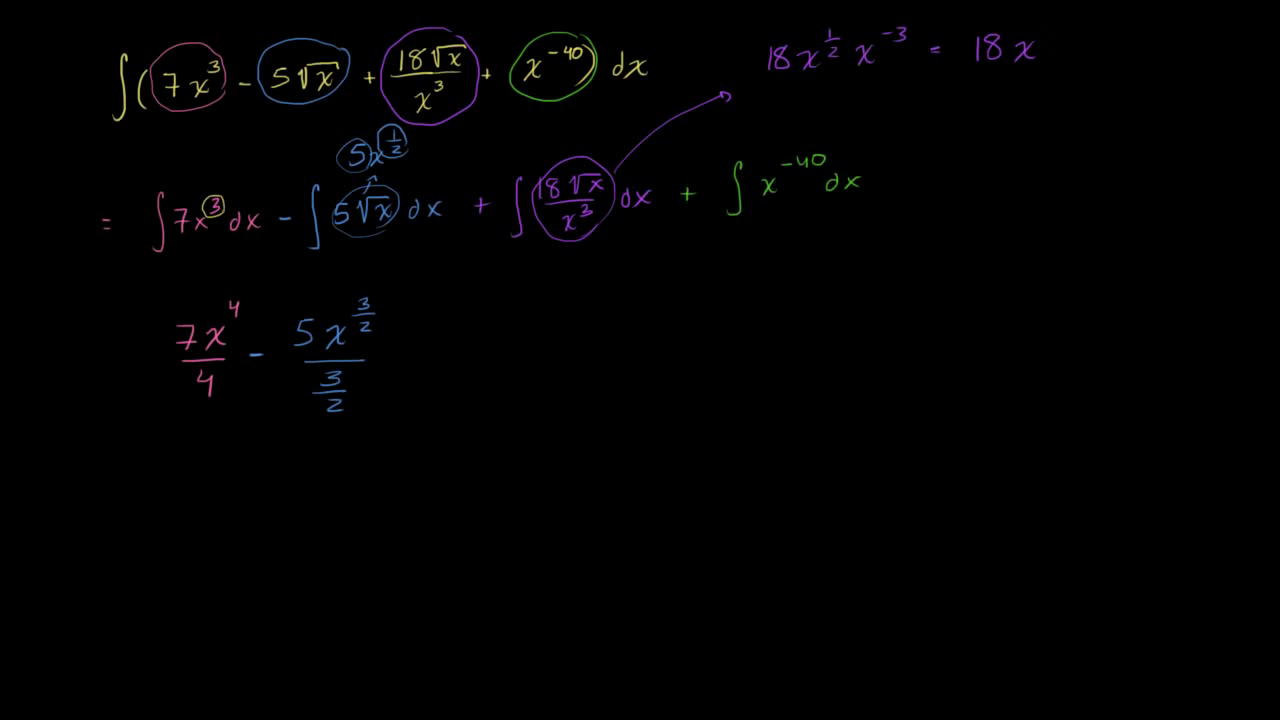 ∫(7x³ - 5√x + 18√x/x³ + x⁻⁴⁰) dx
18x^(1/2) x⁻³ = 18x
5x^(1/2)
= ∫7x³ dx - ∫5√x dx + ∫18√x/x³ dx + ∫x⁻⁴⁰ dx
7x⁴/4 - 5x^(3/2)/(3/2)